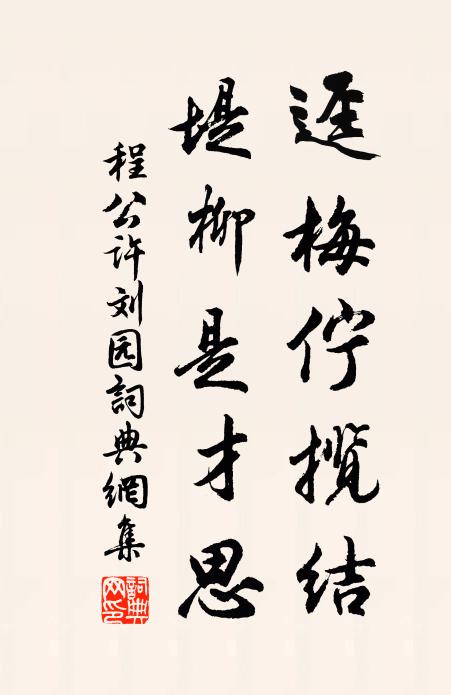 逕梅佇揽结
堤柳是才思
程公许刘园詞典網集
詞典
网印